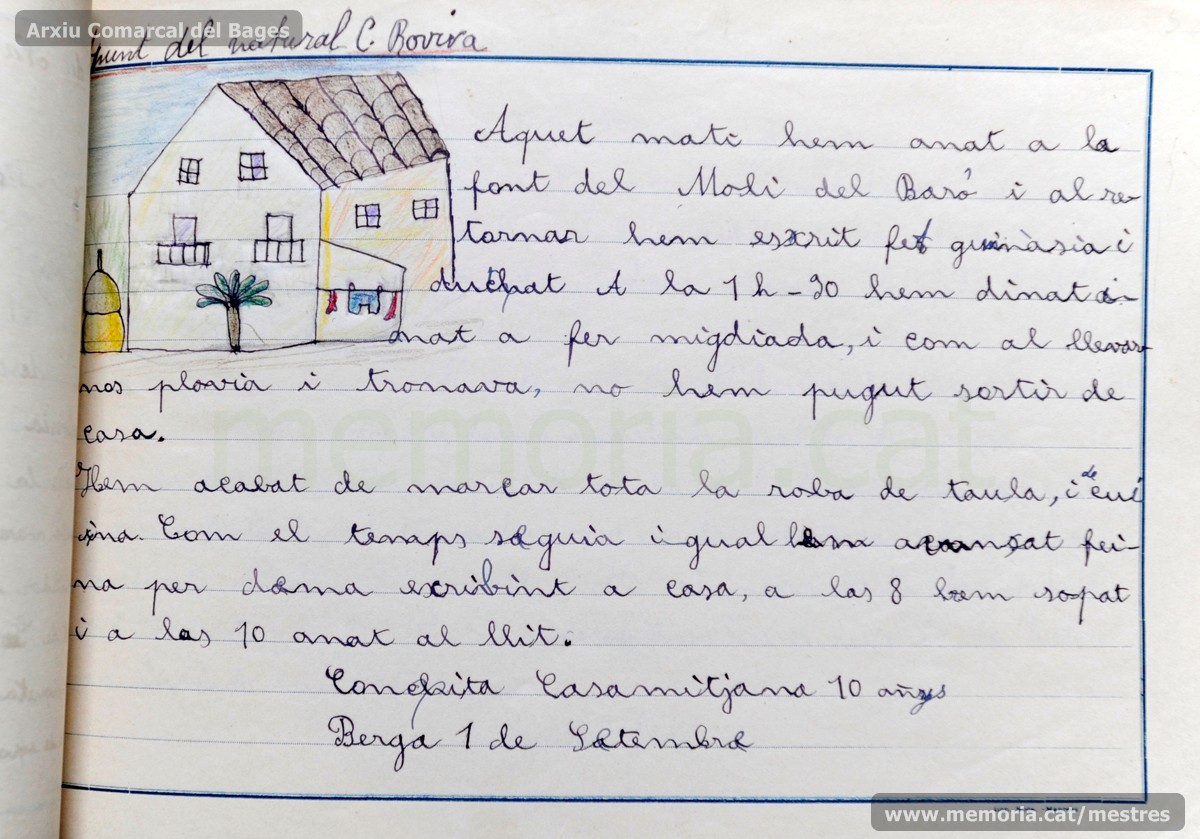 Arxiu Comarcal del Bages
punt del natural C. Rovira
Aquet mati hem anat a la
font del Moli del Baró i al re-
tornar hem escrit fet guinàsia i
dutxat A la 1 h - 30 hem dinat i a-
nat a fer migdiada, i com al llevar-
nos plovia i tronava, no hem pugut sortir de
casa.
Hem acabat de marcar tota la roba de taula, i de cui
ina. Com el temps seguia igual hem avansat fei-
na per dema escribint a casa, a las 8 hem sopat
i a las 10 anat al llit.
Conxita Casamitjana 10 anys
Berga 1 de Setembre
memoria.cat
www.memoria.cat/mestres